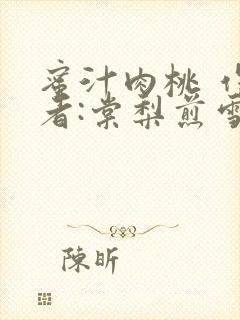 蜜汁肉桃
者:棠梨煎雪
陳昕